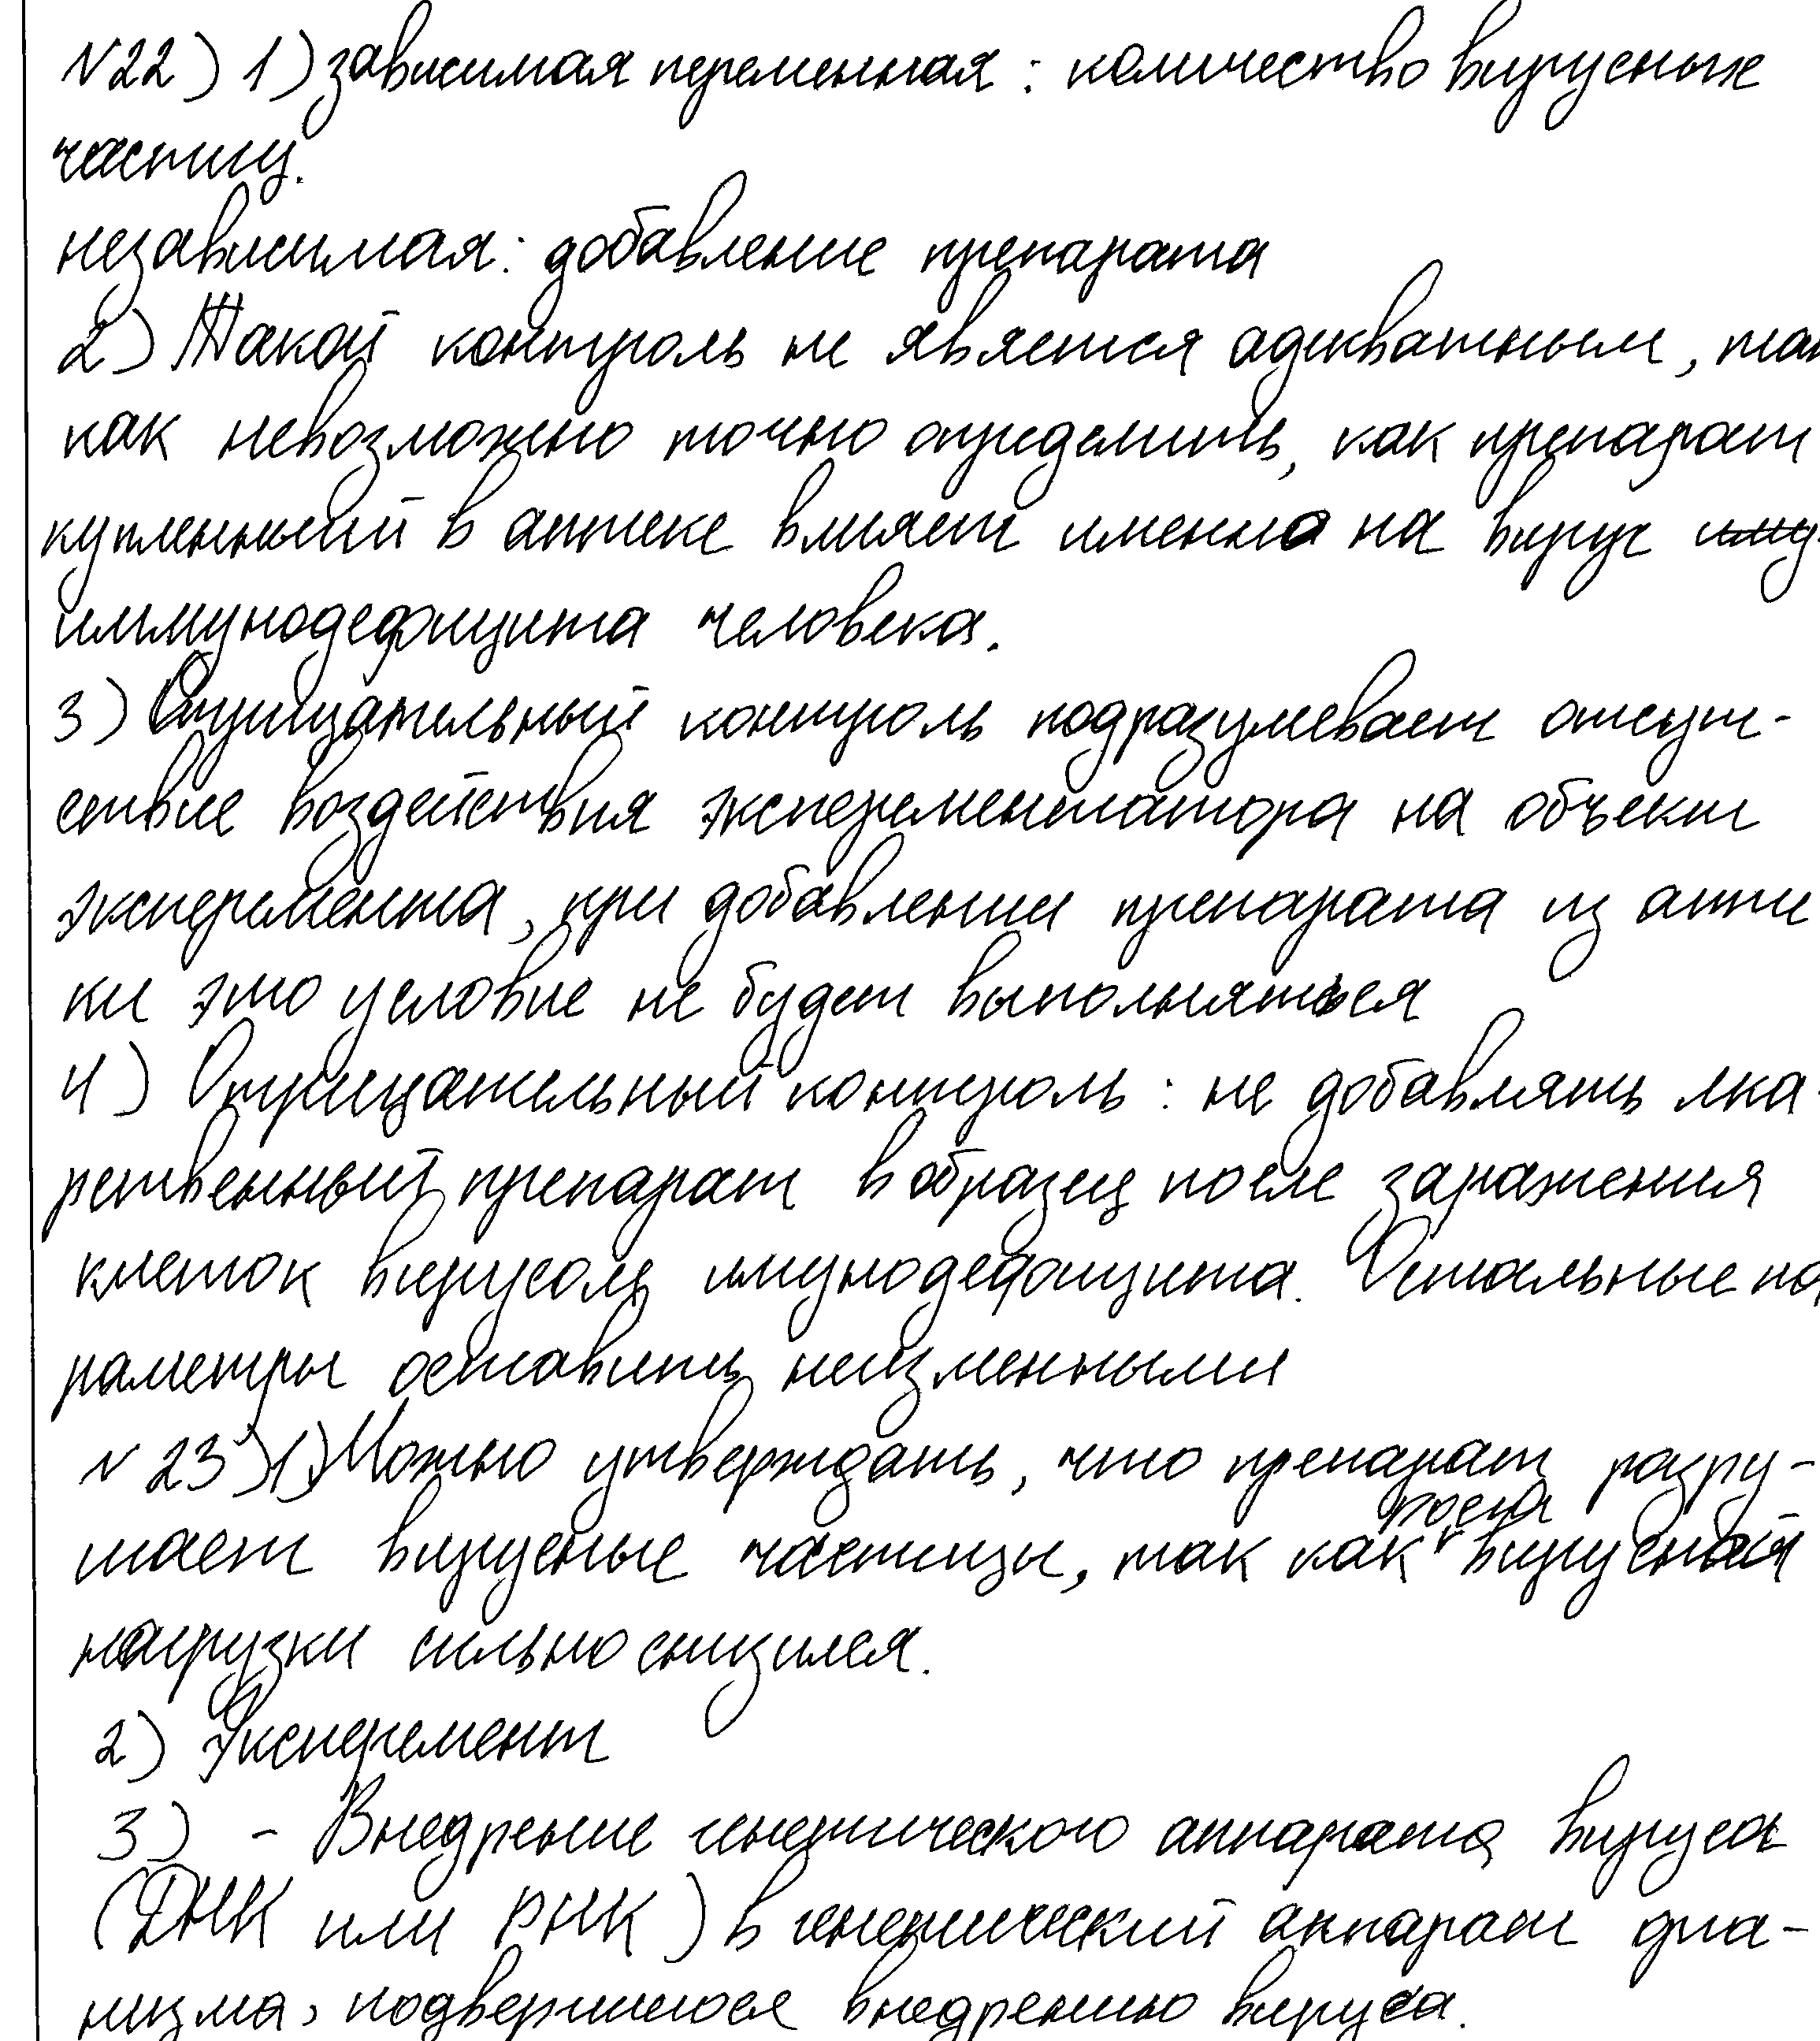 N22) 1) зависимая переменная: количество вирусных
частиц.
независимая: добавление препарата
2) Такой контроль не является адекватным, так
как невозможно точно определить, как препарат
купленный в аптеке влияет именно на вирус иму
иммунодефицита человека.
3) Отрицательный контроль подразумевает отсут-
ствие воздействия эксперементатора на объект
эксперемента, при добавлении препарата из апте
ки это условие не будет выполняться
4) Отрицательный контроль: не добавлять лка-
рственный препарат в образец после заражения
клеток вирусом имунодефицита. Остальные па
раметры оставить неизменными
N 23) 1) Можно утверждать, что препарат разру-
шает вирусные частицы, так как роста вирусной
нагрузки сильно снизился.
2) Эксперемент
3) - Внедрение генетического аппарата вируса
(ДНК или РНК) в генетический аппарат орга-
низма, подвергшегося внедрению вируса.